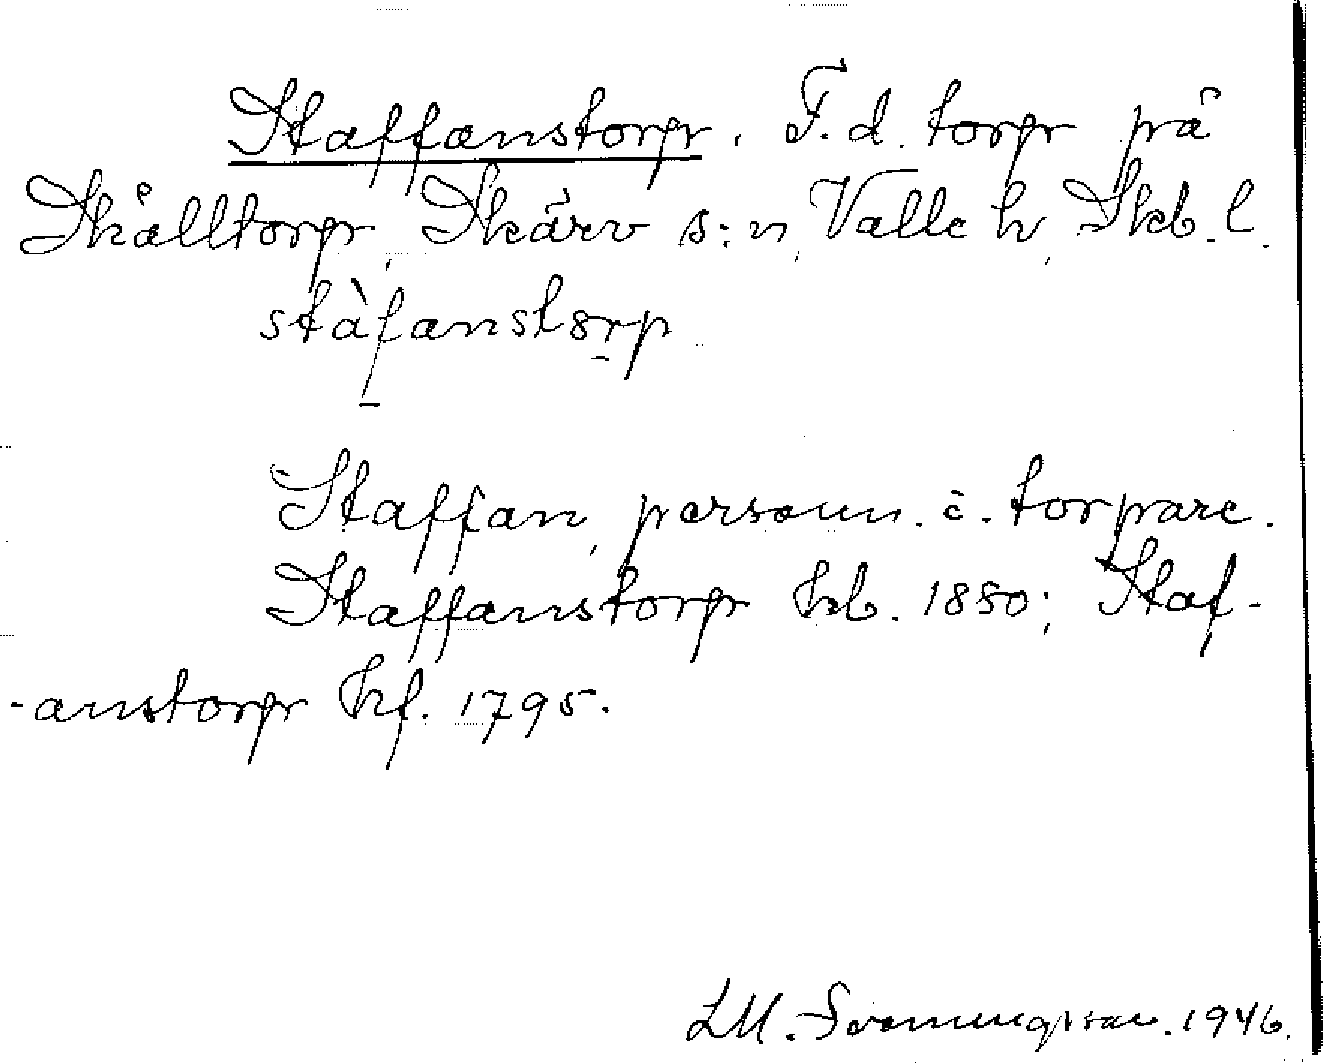 Staffanstorp. F.d. torp på
Skålltorp, Skärv s:n, Valle h, Skb. l.
stàfanstorp
Staffan, personn. å. torpare.
Staffanstorp hb. 1880; Staf-
-anstorp hf. 1795.
LM. Svenungsson. 1946.